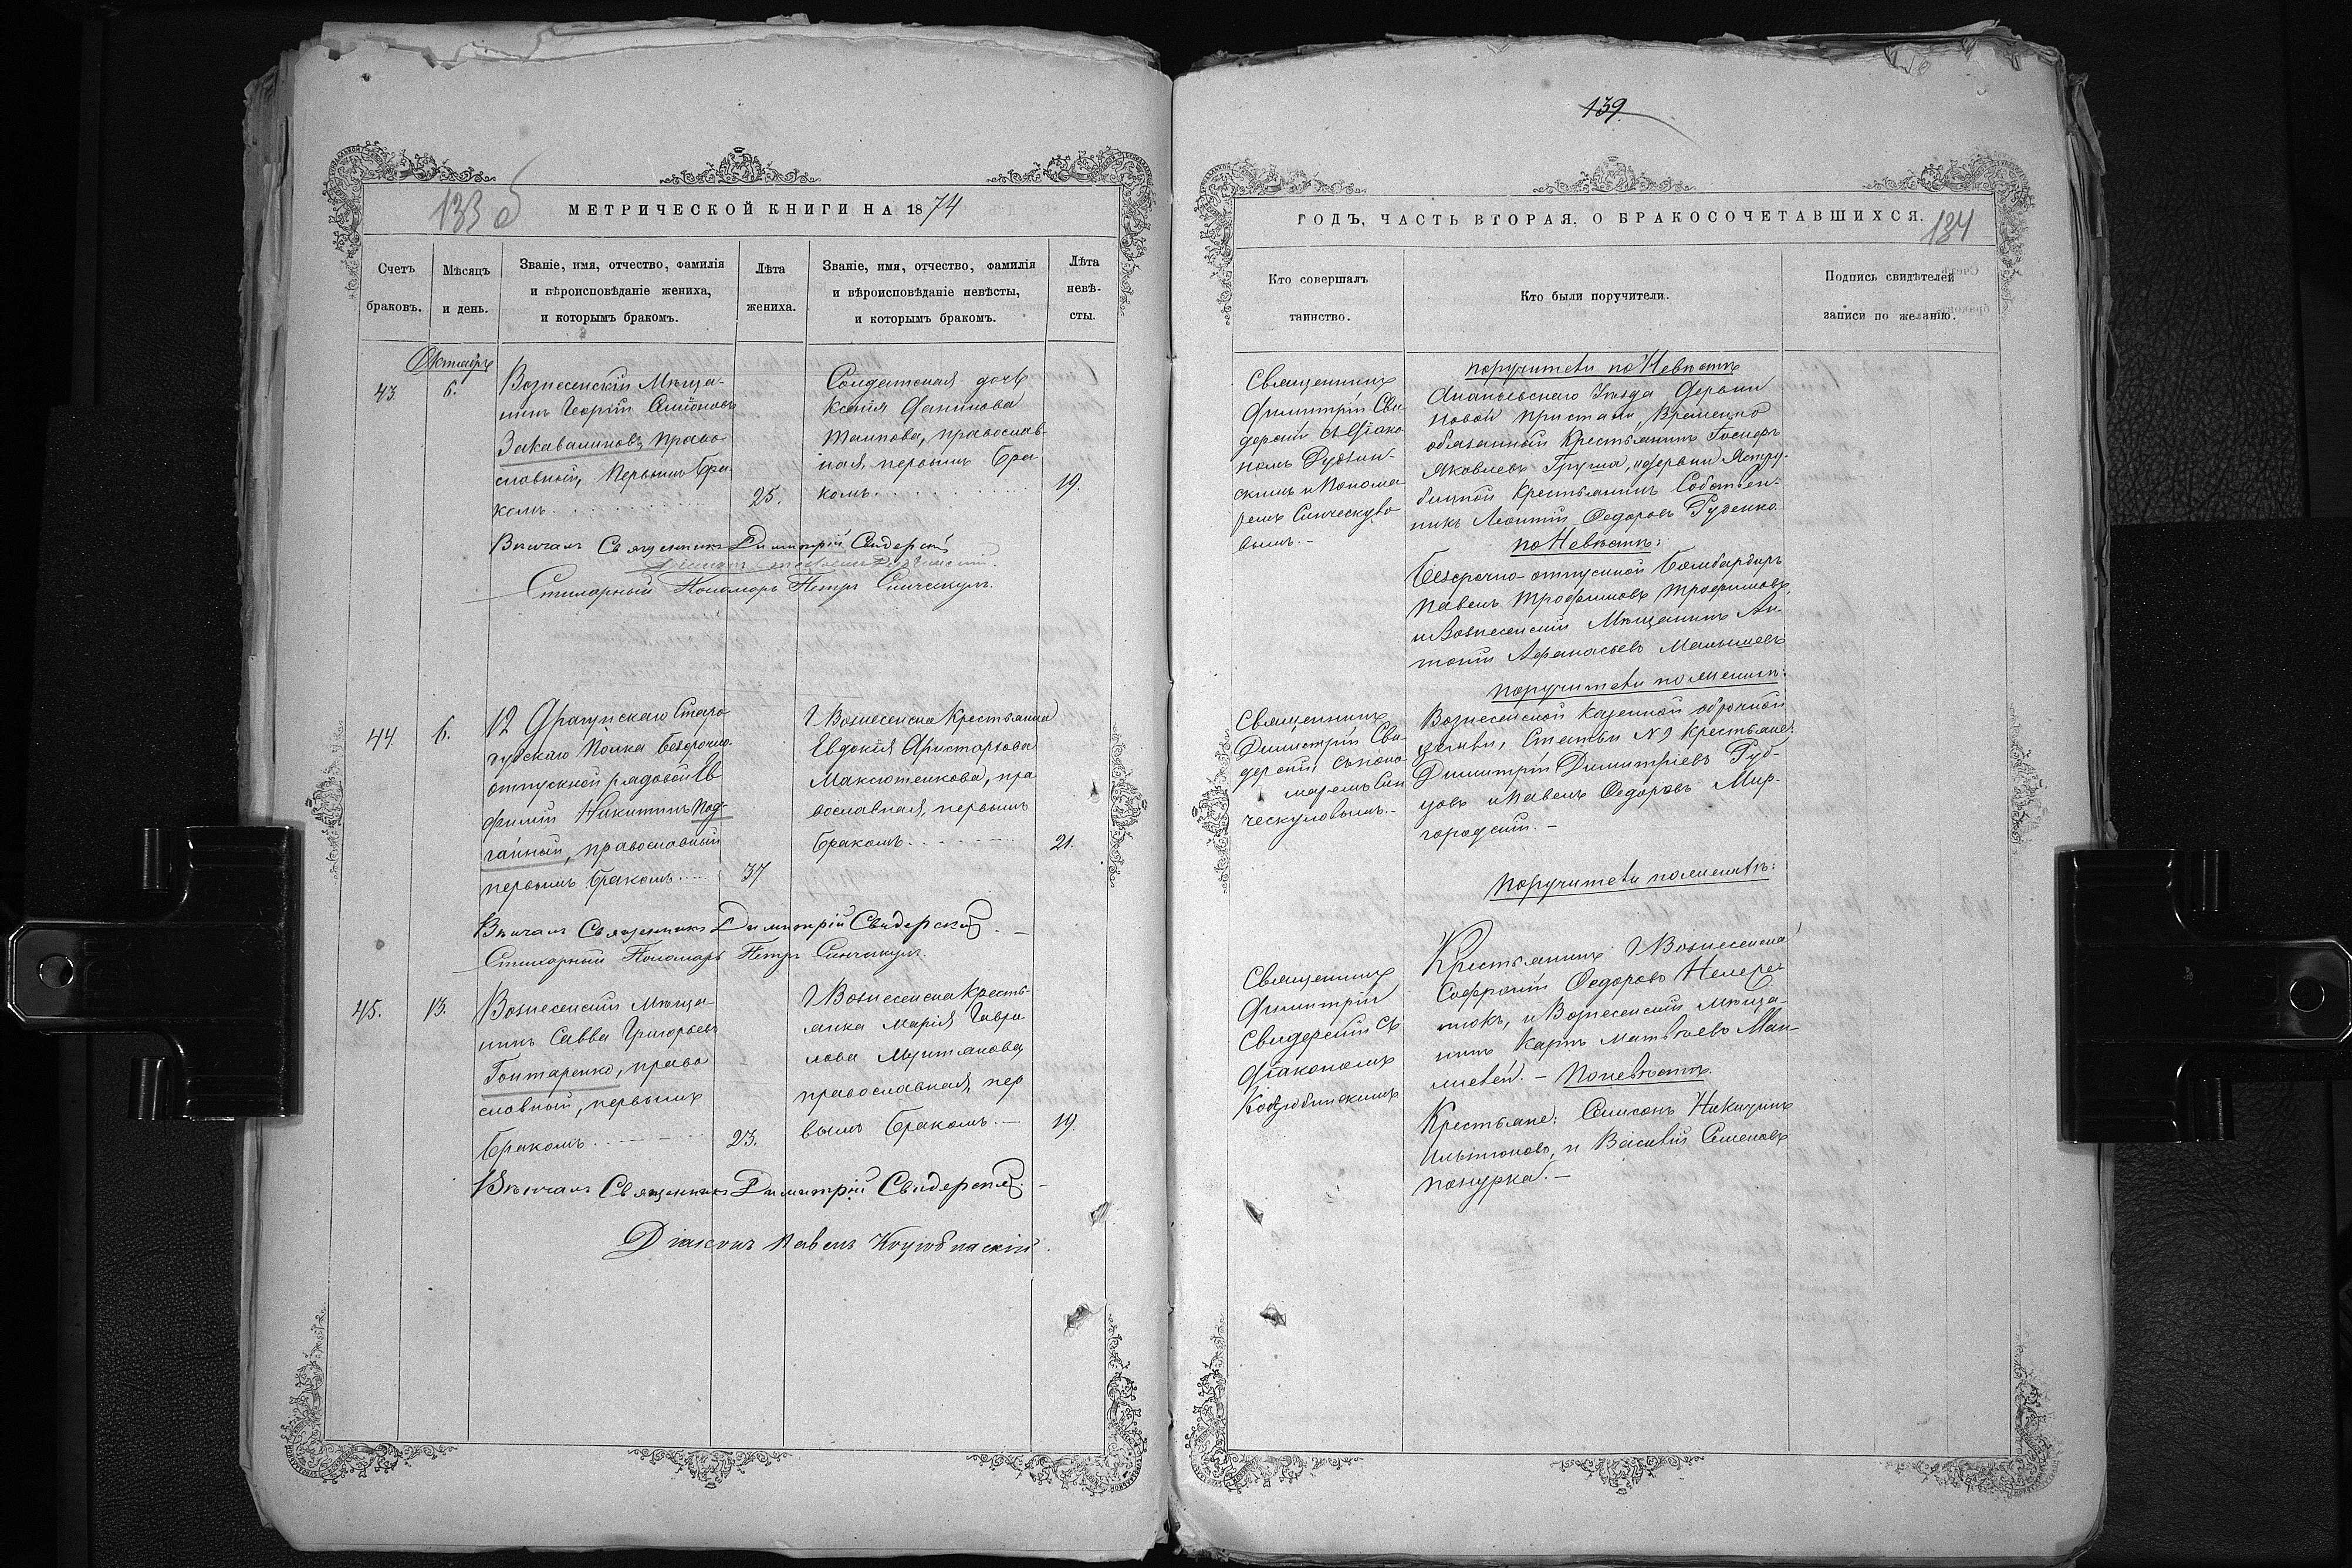 133 об
МЕТРИЧЕСКОЙ КНИГИ НА 1874
Счетъ
браковъ.
Мѣсяцъ
и день.
Званіе, имя, отчество, фамилія
и вѣроисповѣданіе жениха,
и которымъ бракомъ.
Лѣта
жениха.
Званіе, имя, отчество, фамилія
и вѣроисповѣданіе невѣсты,
и которымъ бракомъ.
Лѣта
невѣ-
сты.
Октябрь
43.
6.
Вознесенскій Мѣща-
нинъ Георгій Симіоновъ
Закаваликовъ, право
славный, первымъ бра
комъ
25.
Солдатская дочь
Ксенія
православ-
ная, первымъ бра
комъ
19.
Вѣнчалъ Священникъ Димитрій Свидерскій
Стихарный Пономарь Петръ Синческулъ.
44.
6.
12 Драгунскаго Старо
дубскаго Полка безсрочно
отпускной рядовой Ев
фимій Никитинъ Под-
гайный, православный
первымъ бракомъ
37
г Вознесенска Крестьянка
Евдокія Аристархова
Максютенкова, пра
вославная, первымъ
бракомъ
21.
Вѣнчалъ Священникъ Димитрій Свидерскій. —
Стихарный Пономарь Петръ Синческулъ.
45.
13.
Вознесенскій мѣща
нинъ Савва Григорьевъ
Гонтаренко, право
славный, первымъ
бракомъ
23.
г Вознесенска Кресть-
янка Марія Гаври
лова Мунтянова,
православная, пер
вымъ бракомъ. —
19.
Вѣнчалъ Священникъ Димитрій Свидерскій. —
Діаконъ Павелъ Коцюбинскій.
139.
ГОДЪ, ЧАСТЬ ВТОРАЯ, О БРАКОСОЧЕТАВШИХСЯ.
134
Кто совершалъ
таинство.
Кто были поручители.
Подпись свидѣтелей
записи по желанію.
Священникъ
Димитрій Сви
дерскій съ Діако
номъ
скимъ и Понома
ремъ Синческуло
вымъ. —
поручители по Невѣстѣ
Ананьевскаго Уѣзда Деревни
Новой пристани, Временно
обязанный Крестьянинъ Іосифъ
Яковлевъ Груша, и деревни
Крестьянинъ Собствен-
никъ Леонтій Федоровъ Руденко
по Невѣстѣ:
Безсрочно-отпускной Бомбардиръ
Павелъ Трофимовъ Трофимовъ,
и Вознесенскій Мѣщанинъ Ан-
тоній Афанасьевъ Малышевъ
Священникъ
Димитрій Сви-
дерскій, съ поно-
маремъ Син
ческуловымъ. —
поручители по женихѣ:
Вознесенской Казенной оброчной
земли, Статьи N 9 Крестьяне:
Димитрій Димитріевъ Руб-
цовъ и Павелъ Федоровъ Мир-
городскій. —
поручители по женихѣ:
Священникъ
Димитрій
Свидерскій съ
Діакономъ
Коцюбинскимъ
Крестьянинъ г Вознесенска
Софроній Федоровъ
и Вознесенскій мѣща-
нинъ Карпъ Матвѣевъ
— По невѣстѣ.
Крестьяне: Самсонъ Никитинъ
и Василій Семеновъ